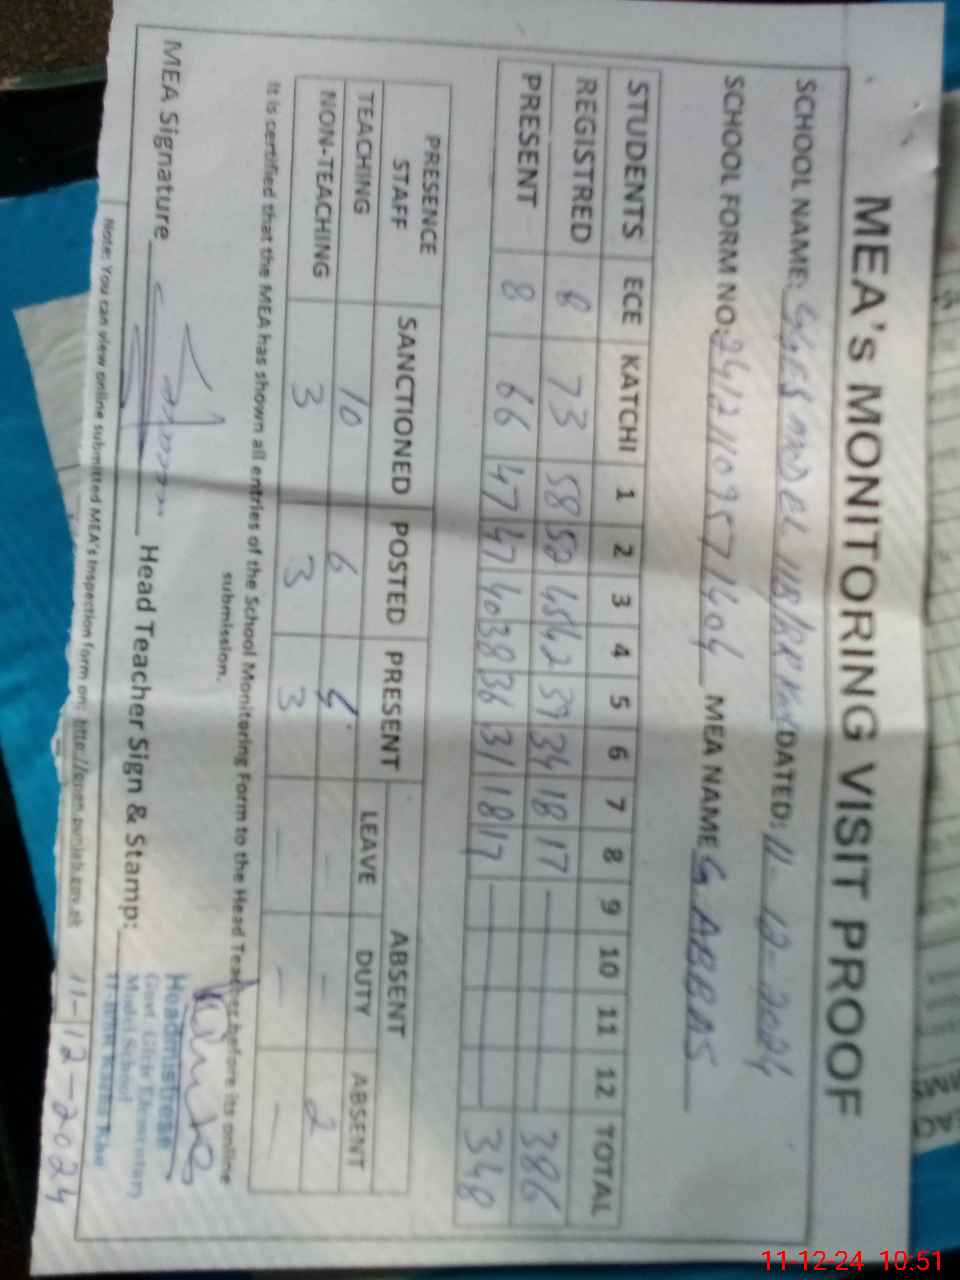 MEA's MONITORING VISIT PROOF
SCHOOL NAME: GGES MODEL 118/RR DATED: 11-12-2024
SCHOOL FORM NO: 24121109571404 MEA NAME G ABBAS
STUDENTS ECE KATCHI 1 2 3 4 5 6 7 8 9 10 11 12 TOTAL
REGISTRED 8 73 58 52 45 42 39 34 18 17 386
PRESENT 8 66 47 47 40 38 36 31 18 17 348
PRESENCE STAFF SANCTIONED POSTED PRESENT ABSENT
LEAVE DUTY ABSENT
TEACHING 10 6 4 - - 2
NON-TEACHING 3 3 3 - - -
It is certified that the MEA has shown all entries of the School Monitoring Form to the Head Teacher before its online
submission.
MEA Signature Head Teacher Sign & Stamp:
Headmistress
Govt. Girls Elementary
Model School
Note: You can view online submitted MEA's Inspection form on: http://open.punjab.gov.pk
11-12-2024
11-12-24 10:51